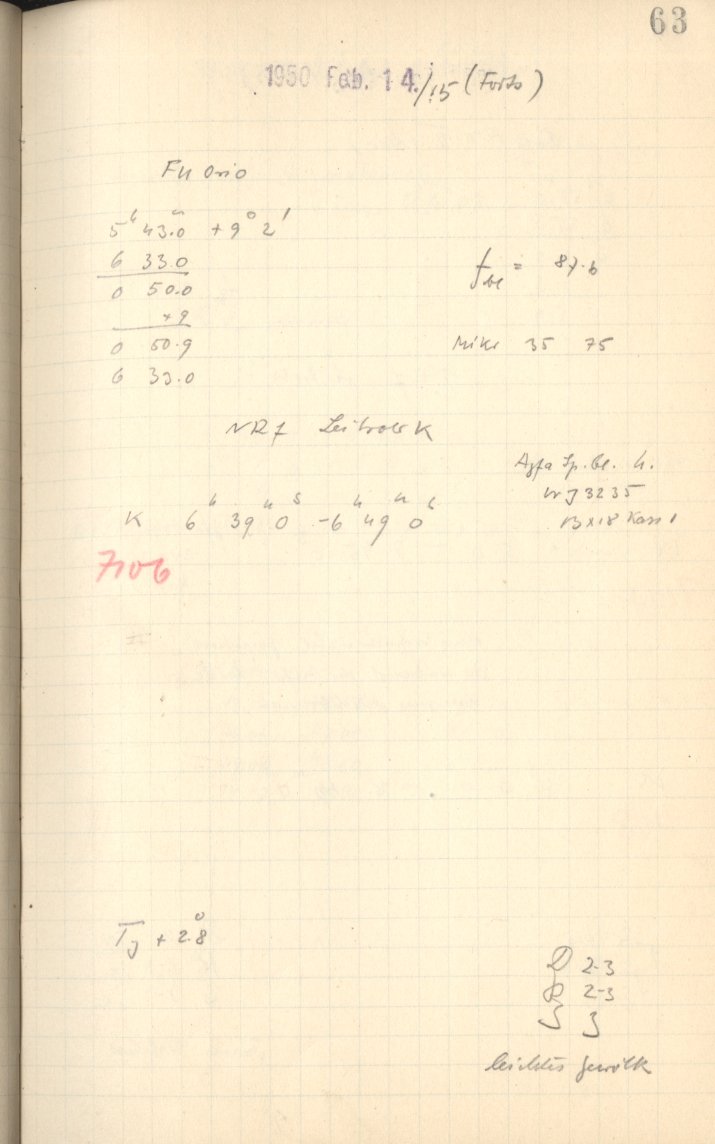 63
1950 Feb. 14./15 (Forts)
FU Orio
5ʰ 43.0ᵐ + 9° 2'
6 33.0
0 50.0
+9
0 50.9
6 33.0
f = 87.6
Mikr 35 75
NR 7 Leitrohr K
Agfa Sp. Bl. H.
13x18 Kass 1
K 6ʰ 39ᵐ 0ˢ - 6ʰ 49ᵐ 0ˢ
7106
T + 2.8°
D 2-3
R 2-3
S 3
leichtes Gewölk